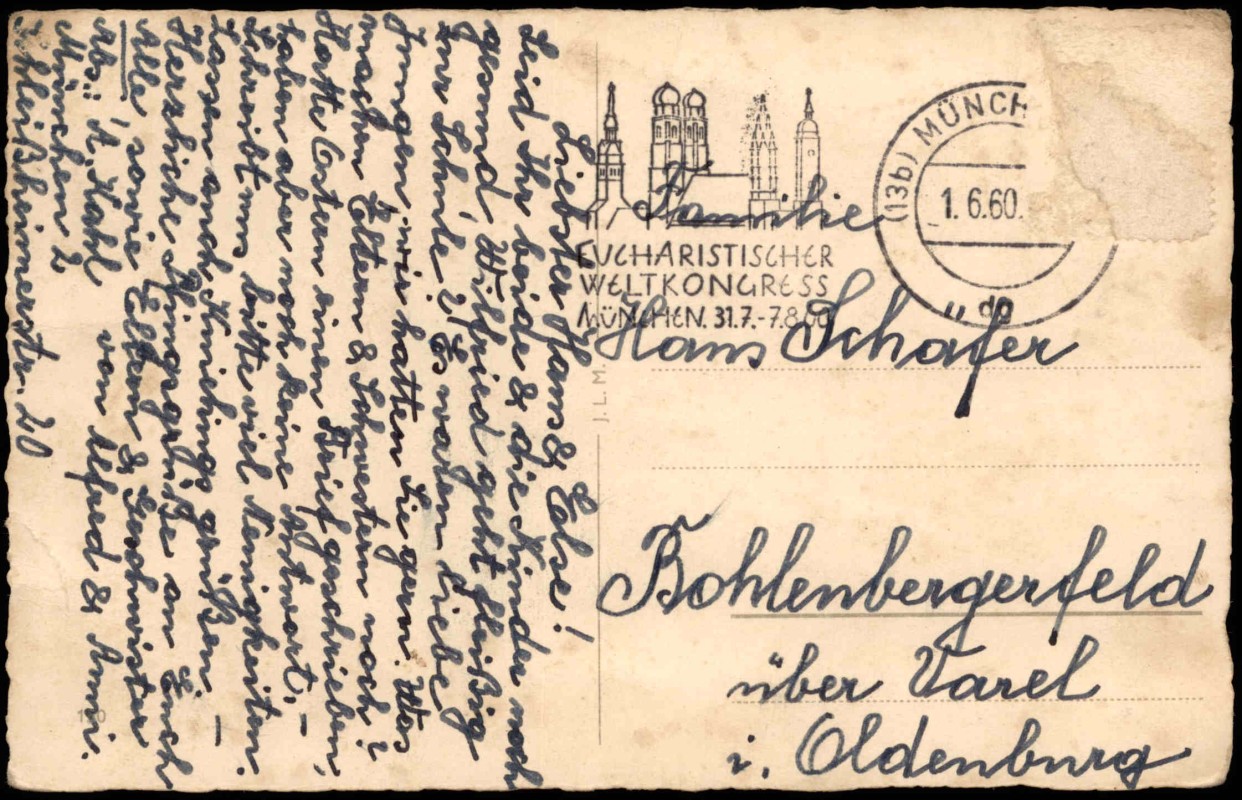 Liebster Hans & Else!
Seid Ihr beide & die Kinder noch
gesund. Wilfried geht fleißig
zur Schule? Es waren liebe
Jungen, wir hatten Sie gern. Was
machen Eltern & Schwestern noch?
Hatte Ostern einen Brief geschrieben,
haben aber noch keine Antwort. –
Schreibt uns bitte viel Neuigkeiten.
Lassen auch grüßen. –
Herzliche Pfingstgrüße an Euch
Alle sowie Eltern & Geschwister
von Alfred & Anni.
Abs: A. Kahl
München 2
Schleißheimerstr. 20
EUCHARISTISCHER
WELTKONGRESS
MÜNCHEN. 31.7.-7.8.60
(13b) MÜNCH
1.6.60.
dg
J.L.M.
Familie
Hans Schäfer
Bohlenbergerfeld
über Varel
i. Oldenburg